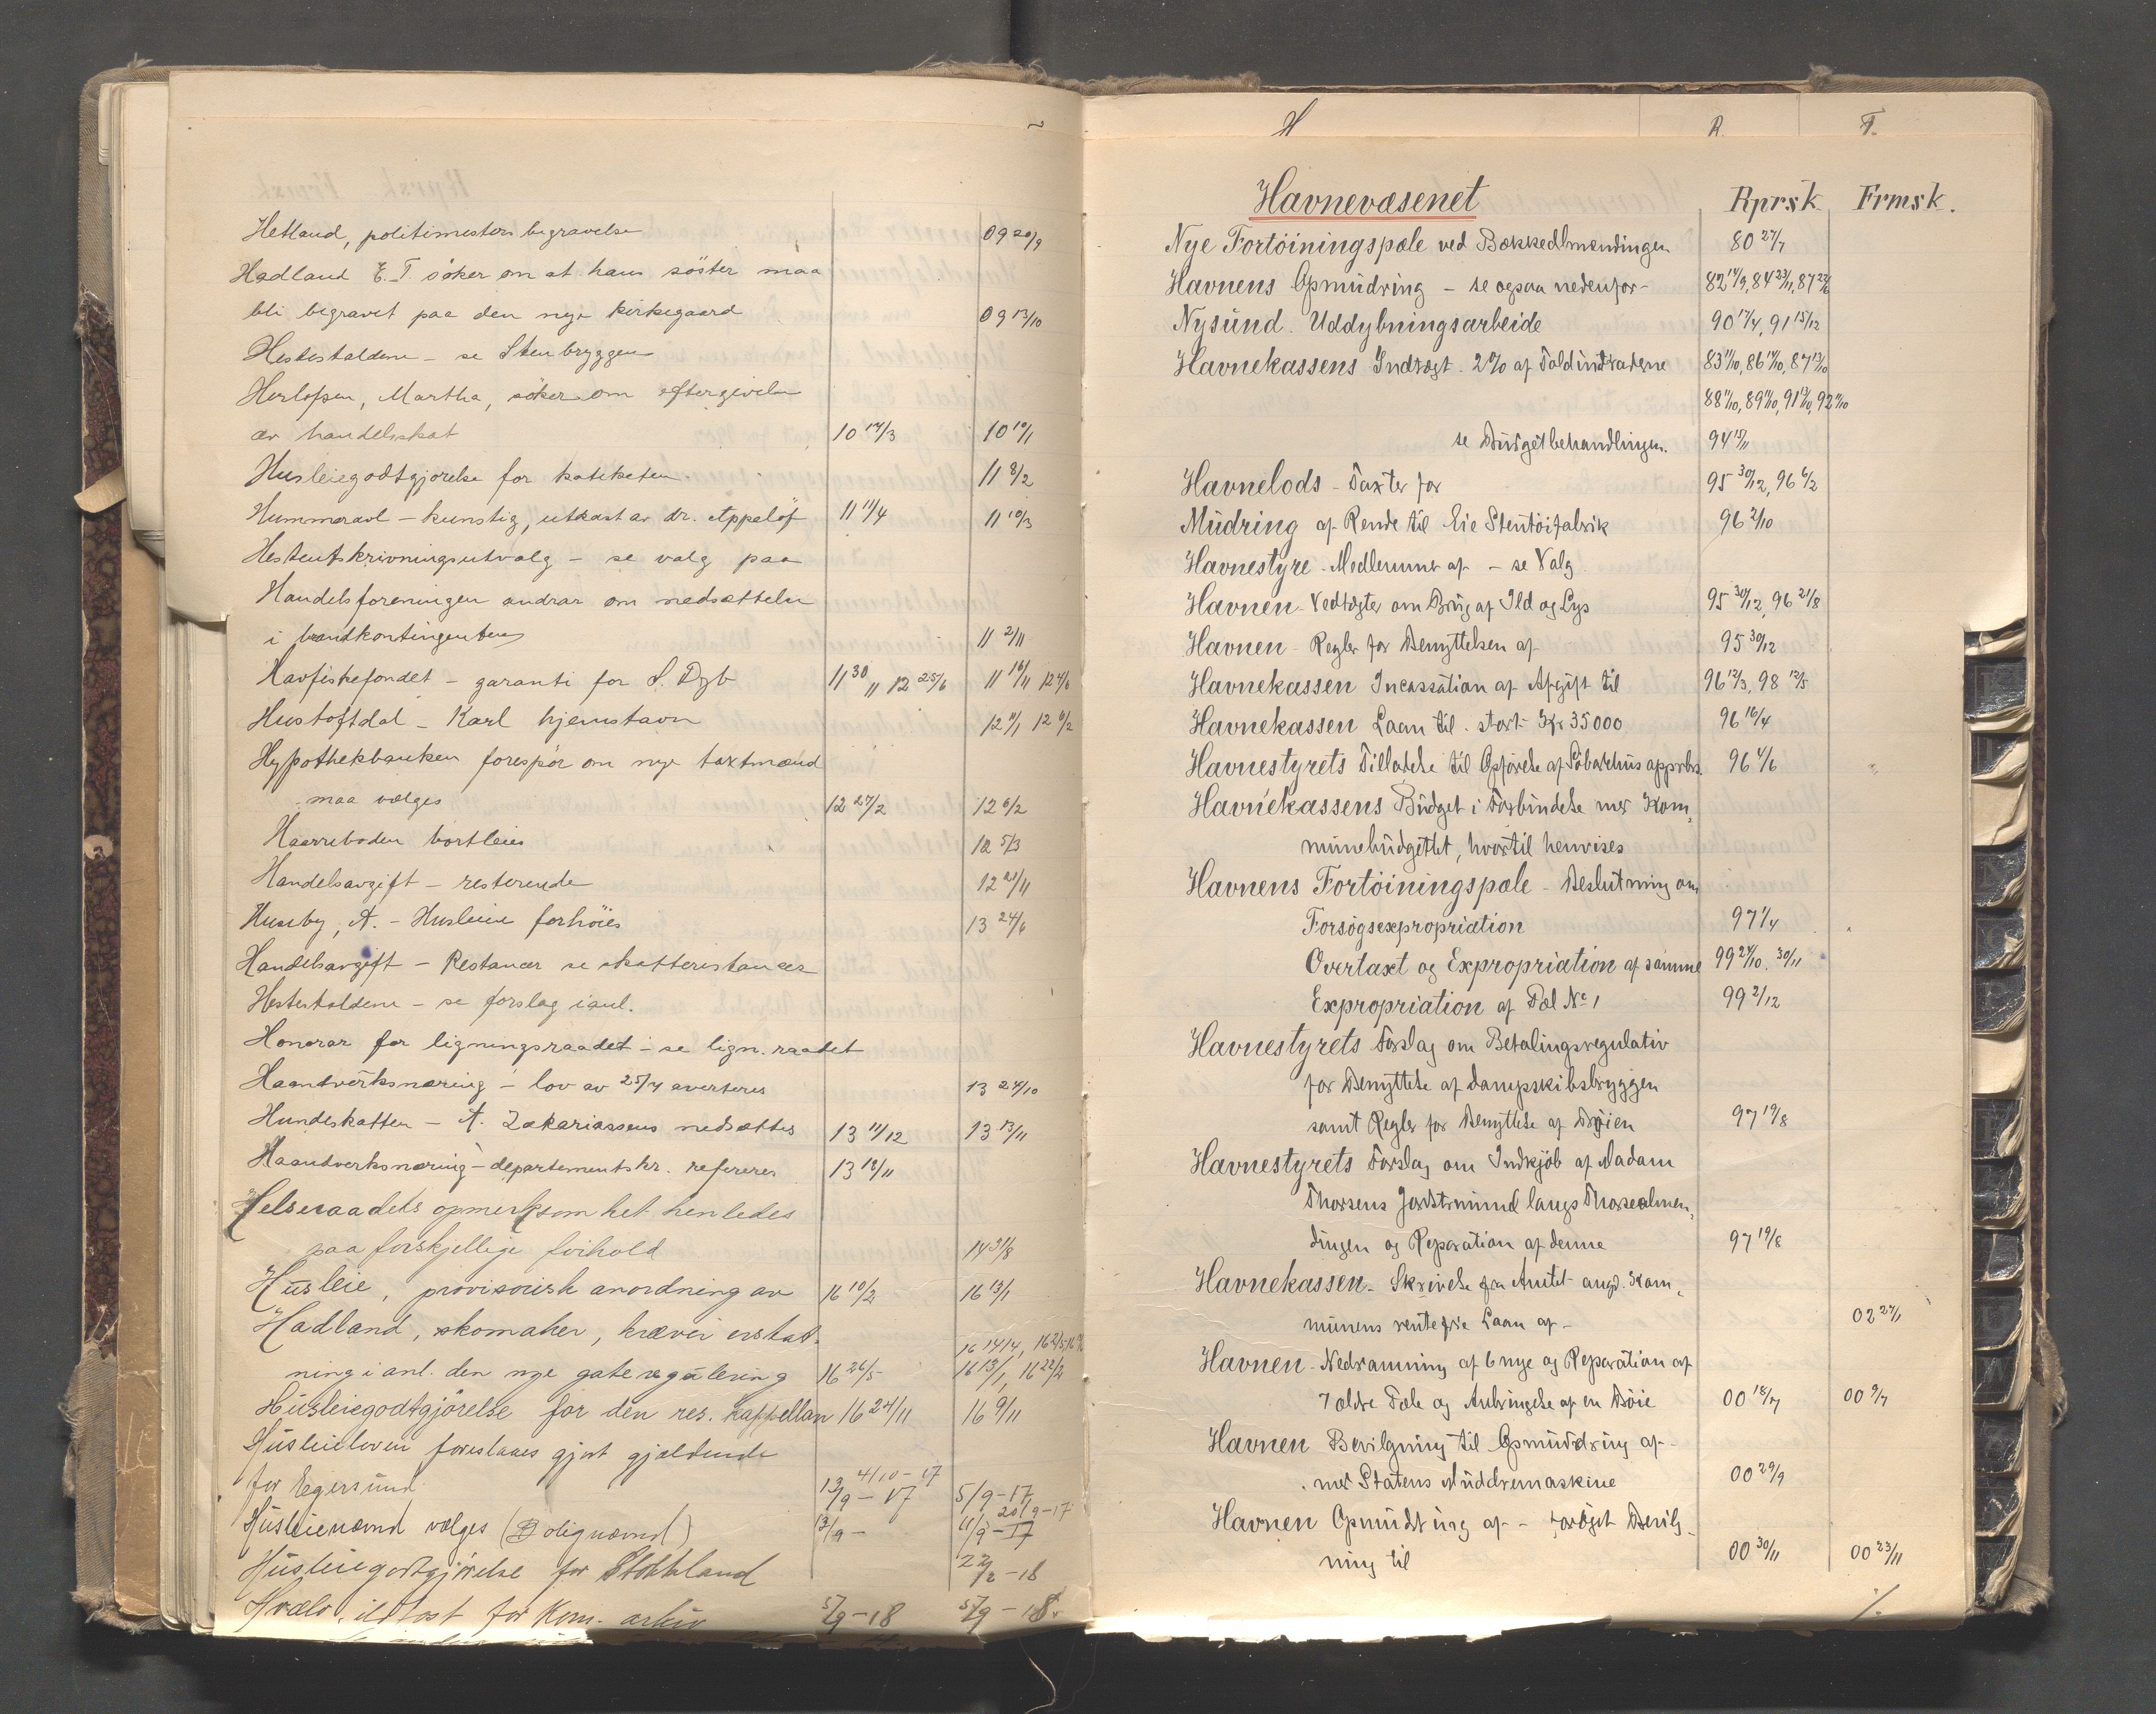 Hetland, politimesters begravelse 09 20/9
Hadland E. T søker om at hans søster maa
bli begravet paa den nye kirkegaard 09 13/10
Hestestaldene – se Stenbryggen
Herlofsen, Martha, søker om eftergivelse
av handelsskat 10 14/3 10 19/1
Husleiegodtgjørelse for katiketen 11 8/2
Hummeravl – kunstig, utkast av dr. Appelöf 11 11/4 11 10/3
Hesteutskrivningsutvalg – se valg paa
Handelsforeningen andrar om nedsættelse
i brandkontingenten 11 2/11
Havfiskefondet – garanti for S. Dyb 11 30/11 12 25/6 11 16/11 12 4/6
Hustoftdal – Karl hjemstavn 12 9/1 12 6/2
Hypothekbanken forespør om nye taxtmænd
maa vælges 12 27/2 12 6/2
Haarreboden bortleies 12 5/3
Handelsavgift – resterende 12 21/11
Huseby, A. – Husleie forhöies 13 24/6
Handelsavgift – Restancer se skatterestancer
Hestestaldene – se forslag i anl.
Honorar for ligningsraadet – se lign. raadet
Haandverksnæring – lov av 25/7 averteres 13 24/10
Hundeskatten – A. Zakariassens nedsættes 13 11/12 13 13/11
Haandverksnæring – departementskr. refereres 13 18/11
Helseraadets opmerksomhet henledes
paa forskjellige forhold 14 31/8
Husleie, provisorisk anordning av 16 10/2 16 13/1
Hadland, skomaker, kræver erstat-
ning i anl. den nye gateregulering 16 26/5 16 13/1, 16 22/2
Husleiegodtgjörelse for den res. kappellan 16 24/11 16 9/11
Husleieloven foreslaaes gjort gjældende
for Egersund 13/9 – 17 4/10 – 17 5/9 – 17
Husleienævnd vælges (Bolignævnd) 13/9 – 11/9 – 17 20/9 – 17
Husleiegodtgjörelse for Stokkland 22/2 – 18
Hvælv, ildfast for Kom. arkiv 5/9 – 18 5/9 – 18.
H R. F.
Havnevæsenet Rprsk. Frmsk.
Nye Fortöiningspæle ved Bækkedlmendingen 80 27/7
Havnens Opmudring – se ogsaa nedenfor – 82 14/9, 84 23/11, 87 22/6
Nysund. Uddybningsarbeide 90 17/4, 91 15/12
Havnekassens Indtægt. 2% af Toldindtræderne 83 11/10, 86 14/10, 87 13/10
88 11/10, 89 11/10, 91 12/10, 92 11/10
se Budgetbehandlingen. 94 15/11
Havnelods – Taxter for 95 30/12, 96 6/2
Mudring af Rende til Eie Stentöifabrik 96 2/10
Havnestyre – Medlemmer af – se Valg
Havnen – Vedtægter om Brug af Ild og Lys 95 30/12, 96 21/8
Havnen – Regler for Benyttelsen af 95 30/12
Havnekassen Incassation af Afgift til 96 12/3, 98 12/5
Havnekassen Laan til. stort Kr 35000 96 16/4
Havnestyrets Tilladelse til Opförelse af Söbathus approbs. 96 4/6
Havnekassens Budget i Forbindelse med Kom-
munebudgettet, hvortil henvises
Havnens Fortöiningspæle – Beslutning om
Forsøgsexpropriation 97 1/4
Overtaxt og Expropriation af samme 99 24/10. 30/11
Expropriation af Pæl No 1 99 2/12
Havnestyrets Forslag om Betalingsregulativ
for Benyttelse af Dampskibsbryggen
samt Regler for Benyttelse af Bøien 97 19/8
Havnestyrets Forslag om Indkjöb af Madam
Thorsens Jordstrimmel langs Thorsealmen-
dingen og Reparation af denne 97 19/8
Havnekassen – Skrivelse fra Amtet angd. Kom-
munens rentefrie Laan af – 02 27/1
Havnen – Nedramning af 6 nye og Reparation af
7 ældre Pæle og Anbringelse af en Böie 00 18/7 00 9/7
Havnen Bevilgning til Opmuddring af –
med Statens Muddremaskine 00 29/9
Havnen Opmudring af – forøget Bevilg-
ning til 00 30/11 00 23/11